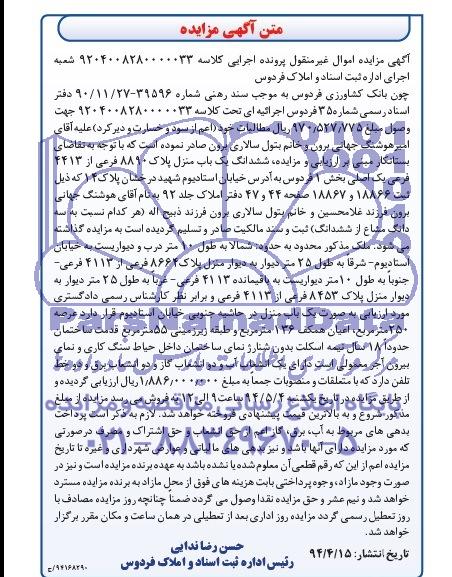 متن آگهی مزایده
آگهی مزایده اموال غیرمنقول پرونده اجرایی کلاسه ۹۲۰۴۰۰۸۲۸۰۰۰۰۰۳۳ شعبه
اجرای اداره ثبت اسناد و املاک فردوس
چون بانک کشاورزی فردوس به موجب سند رهنی شماره ۳۹۵۹۶-۹۰/۱۱/۲۷ دفتر
اسناد رسمی شماره۳۵ فردوس اجرائیه ای تحت کلاسه ۹۲۰۴۰۰۸۲۸۰۰۰۰۰۳۳ جهت
وصول مبلغ ۹۷۰/۵۲۷/۷۷۵ ریال مطالبات خود (اعم از سود و خسارت و دیرکرد) علیه آقای
امیرهوشنگ جهانی برون و خانم بتول سالاری برون صادر نموده است که با توجه به تقاضای
بستانکار مبنی بر ارزیابی و مزایده، ششدانگ یک باب منزل پلاک ۸۸۹۰ فرعی از ۴۱۱۳
فرعی یک اصلی بخش ۱ فردوس به آدرس خیابان استادیوم شهید درخشان پلاک۱۴ که ذیل
ثبت ۱۸۸۶۶ و ۱۸۸۶۷ صفحه ۴۴ و ۴۷ دفتر املاک جلد ۹۲ به نام آقای هوشنگ جهانی
برون فرزند غلامحسین و خانم بتول سالاری برون فرزند ذبیح اله (هر کدام نسبت به سه
دانگ مشاع از ششدانگ) ثبت و سند مالکیت صادر و تسلیم گردیده است به مزایده گذاشته
می شود. ملک مذکور محدود به حدود: شمالا به طول ۱۰ متر درب و دیواریست به خیابان
استادیوم- شرقا به طول ۲۵ متر دیوار به دیوار منزل پلاک ۸۶۶۴ فرعی از ۴۱۱۳ فرعی-
جنوبا به طول ۱۰ متر دیواریست به باقیمانده ۴۱۱۳ فرعی- غربا به طول ۲۵ متر دیوار به
دیوار منزل پلاک ۸۴۵۳ فرعی از ۴۱۱۳ فرعی و برابر نظر کارشناس رسمی دادگستری
مورد ارزیابی به صورت یک باب منزل در حاشیه جنوبی خیابان استادیوم قرار دارد عرصه
۲۵۰مترمربع، اعیان همکف ۱۳۶ مترمربع و طبقه زیرزمینی ۵۵مترمربع قدمت ساختمان
حدودا ۱۸ سال نیمه اسکلت بدون شناژ نمای ساختمان داخل حیاط سنگ کاری و نمای
بیرون آجر معمولی است دارای یک انشعاب آب و دو انشعاب گاز و دو انشعاب برق و دو خط
تلفن دارد که با متعلقات و منصوبات جمعا به مبلغ ۱/۸۸۶/۰۰۰/۰۰۰ ریال ارزیابی گردیده و
از طریق مزایده در تاریخ یکشنبه ۹۴/۵/۴ ساعت۹ الی ۱۲ به فروش می رسد مزایده از مبلغ
مذکور شروع و به بالاترین قیمت پیشنهادی فروخته خواهد شد. لازم به ذکر است پرداخت
بدهی های مربوط به آب، برق، گاز اعم از حق انشعاب و حق اشتراک و مصرف درصورتی
که مورد مزایده دارای آنها باشد و نیز بدهی های مالیاتی و عوارض شهرداری و غیره تا تاریخ
مزایده اعم از این که رقم قطعی آن معلوم شده یا نشده باشد به عهده برنده مزایده است و نیز در
صورت وجود مازاد، وجوه پرداختی بابت هزینه های فوق از محل مازاد به برنده مزایده مسترد
خواهد شد و نیم عشر و حق مزایده نقدا وصول می گردد ضمنا چنانچه روز مزایده مصادف با
روز تعطیل رسمی گردد مزایده روز اداری بعد از تعطیلی در همان ساعت و مکان مقرر برگزار
خواهد شد.
تاریخ انتشار: ۹۴/۴/۱۵
حسن رضا ندایی
رئیس اداره ثبت اسناد و املاک فردوس
۹۴۱۶۸۲۹۰/ح
۰۲۱-۸۸۳۴۹۶۷۰-۵